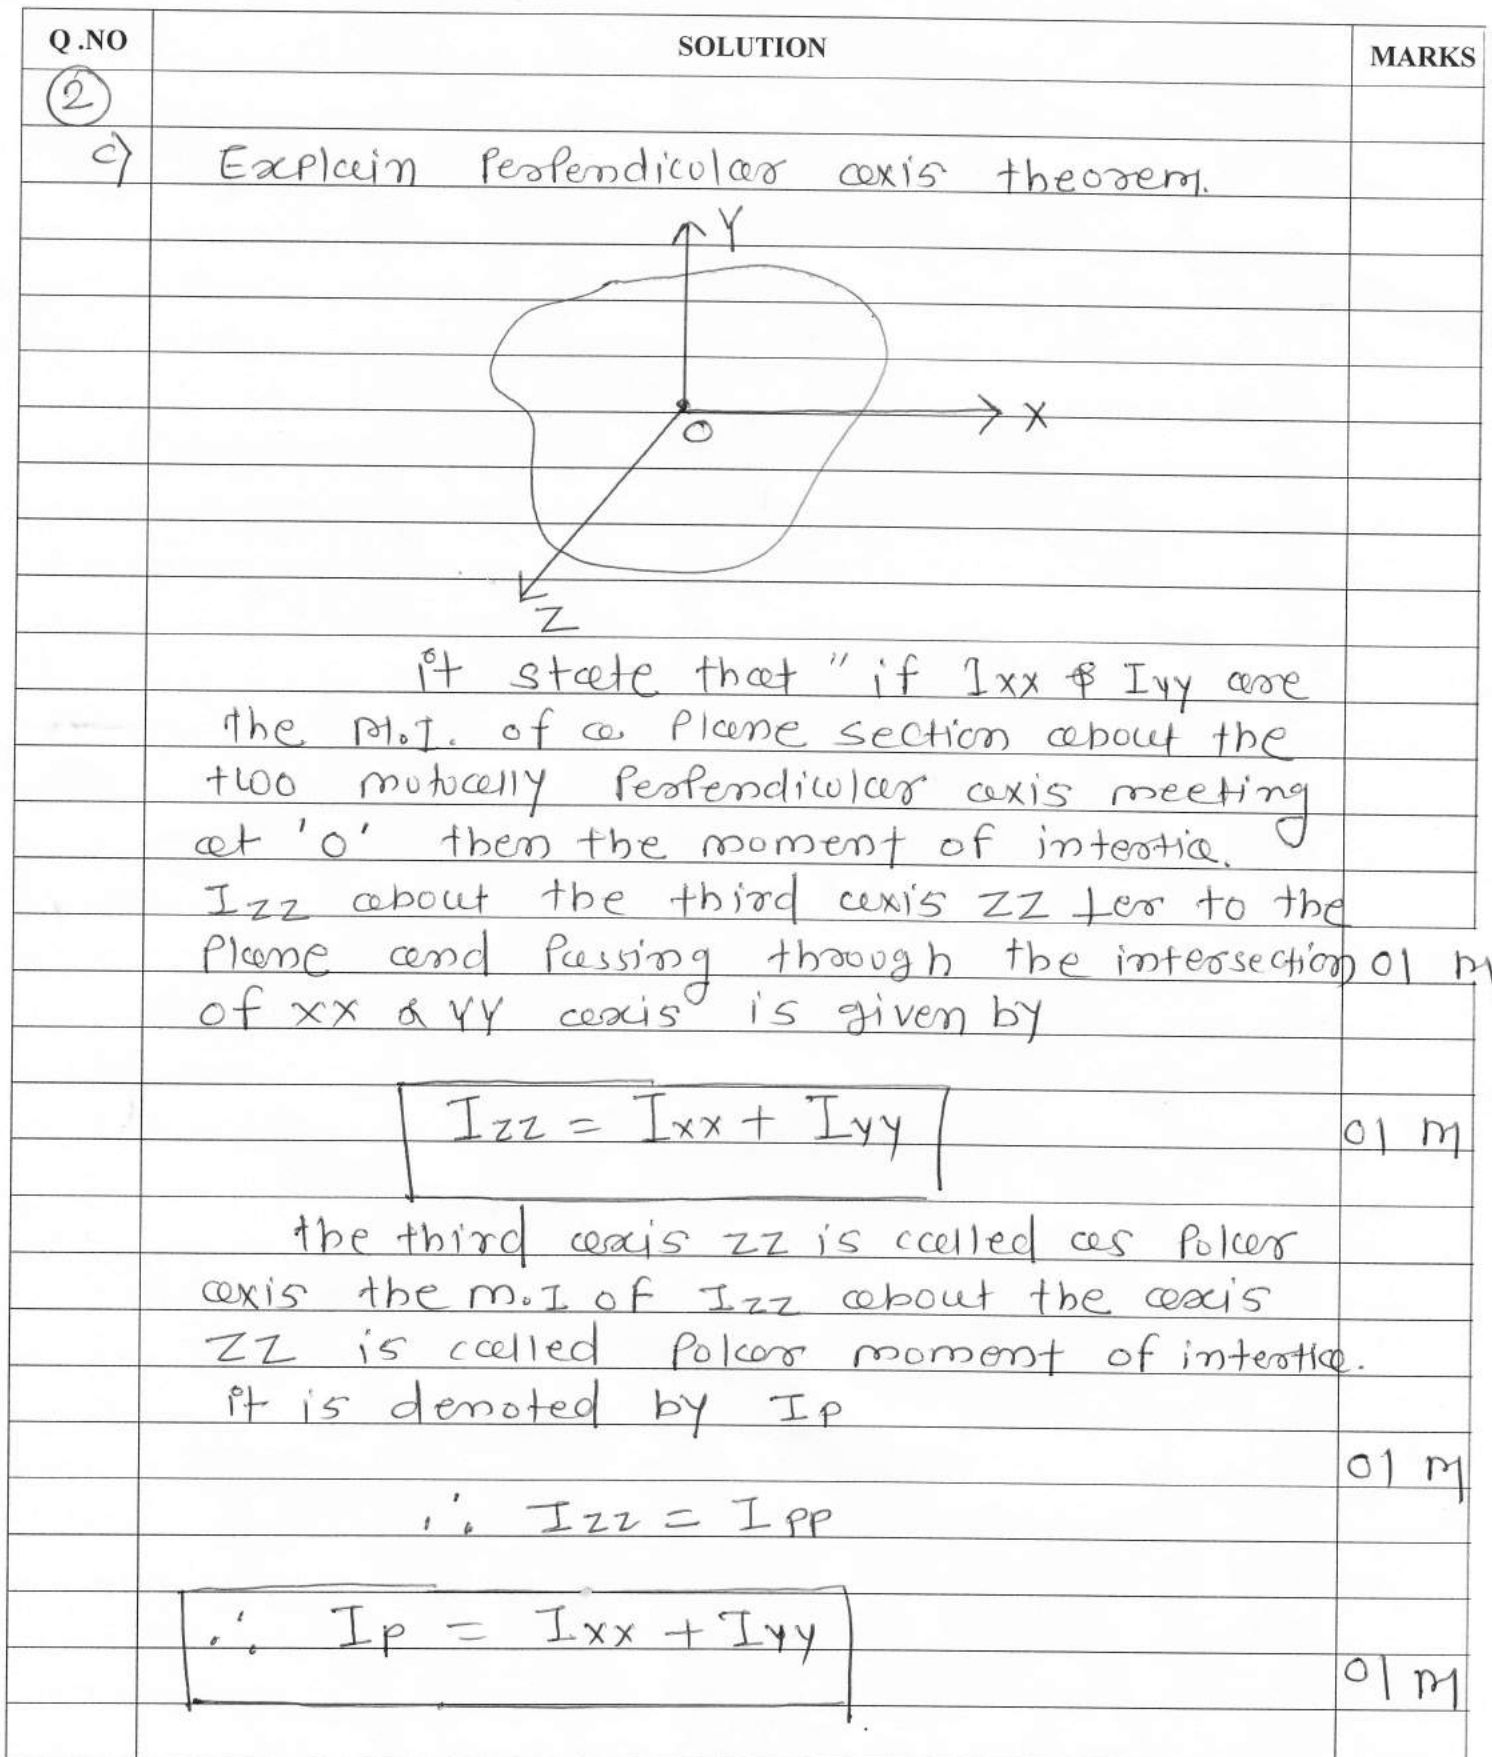 Q.NO SOLUTION MARKS
2
c) Explain Perpendicular axis theorem.
Y
X
O
Z
it state that "if Ixx & Iyy are
the M.I. of a Plane section about the
two mutually Perpendicular axis meeting
at 'O' then the moment of intertia.
Izz about the third axis ZZ ⊥er to the
Plane and Passing through the intersection 01 M
of xx & yy axis is given by
Izz = Ixx + Iyy 01 M
the third axis zz is called as Polar
axis the m.I of Izz about the axis
ZZ is called Polar moment of intertia.
it is denoted by Ip
01 M
∴ Izz = Ipp
∴ Ip = Ixx + Iyy
01 M